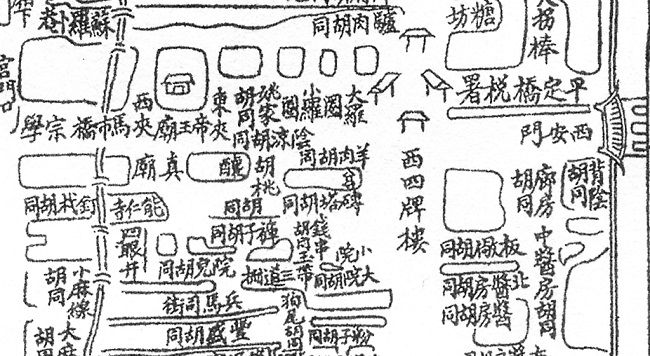 驢肉胡同
糖坊
拐棒
宮門口
平定橋税署
西安門
西四牌樓
大羅圈
小羅圈
姚家胡同
陰涼胡同
東夾
帝王廟
西夾
馬市橋
宗學
羊肉胡同
磚塔胡同
真廟
胡桃
胡同
能仁寺
四眼井
褲子胡同
院兒胡同
錢串胡同
玉帶
小院
大院胡同
三道柵
兵馬司街
豐盛胡同
小麻線胡同
大麻
胡
狗尾胡同
粉子胡同
背陰胡同
廊房胡同
中醬房胡同
北醬房胡同
醬房胡同